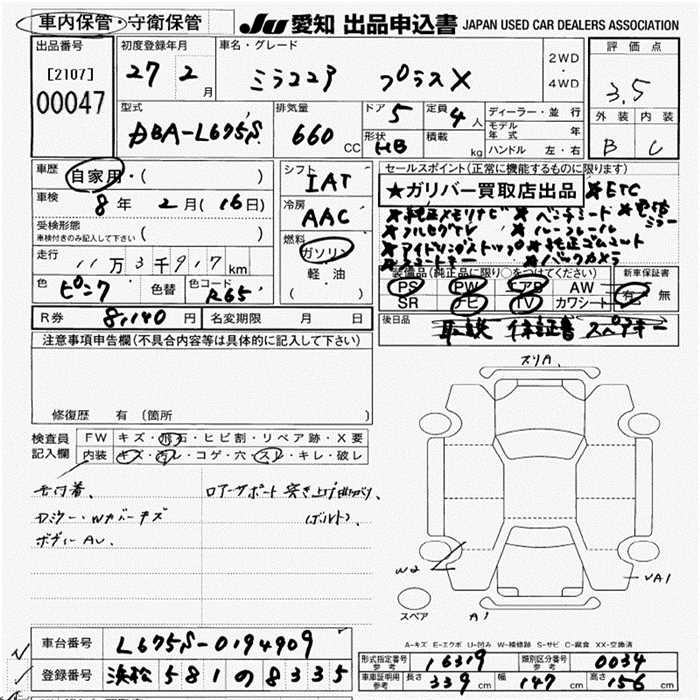 車内保管・守衛保管 JU 愛知 出品申込書 JAPAN USED CAR DEALERS ASSOCIATION
出品番号
[2107]
00047
初度登録年月
27 2 月
車名・グレード
ミラココア プラスX
2WD・4WD
評価点
3.5
外装 内装
B C
型式
DBA-L675S
排気量
660 CC
ドア 5
定員 4 人
形状 HB
積載 kg
ディーラー・並行
モデル年式 年
ハンドル 左・右
車歴
自家用・( )
車検
8 年 2 月 (16日)
受検形態
車検付きのみ記入して下さい ( )
走行
11万3千917km
色 ピンク 色替 色コード R65
シフト
IAT
冷房
AAC
燃料
ガソリン
軽・油
( )
セールスポイント(正常に機能するものに限ります)
★ガリバー買取店出品 ★ETC
★純正メモリナビ ★ベンチシート ★電格ミラー
★フルセグTV ★ルーフレール
★アイドリングストップ ★純正ゴムマット
★スマートキー ★バックカメラ
装備品(純正品に限り○をつけてください)
PS PW エアB AW
SR ナビ TV カワシート
新車保証書
有・無
R券 8,140 円 名変期限 月 日
後日品 取説 保証書 スペアキー
注意事項申告欄(不具合内容等は具体的に記入して下さい)
修復歴 有 (箇所
検査員記入欄
FW キズ・飛石・ヒビ割・リペア跡・X要
内装 キズ・汚レ・コゲ・穴・スレ・キレ・破レ
ロアーサポート突き上げ曲がり
(ボルト)
スリA
W2
VA1
A1
スペア
A-キズ E-エクボ U-凹み W-補修跡 S-サビ C-腐食 XX-交換済
車台番号 L675S-0194909
登録番号 浜松 581 の 8335
形式指定番号 参考 16319 類別区分番号 参考 0034
車庫証明用 参考 長さ 339 cm 幅 147 cm 高さ 156 cm